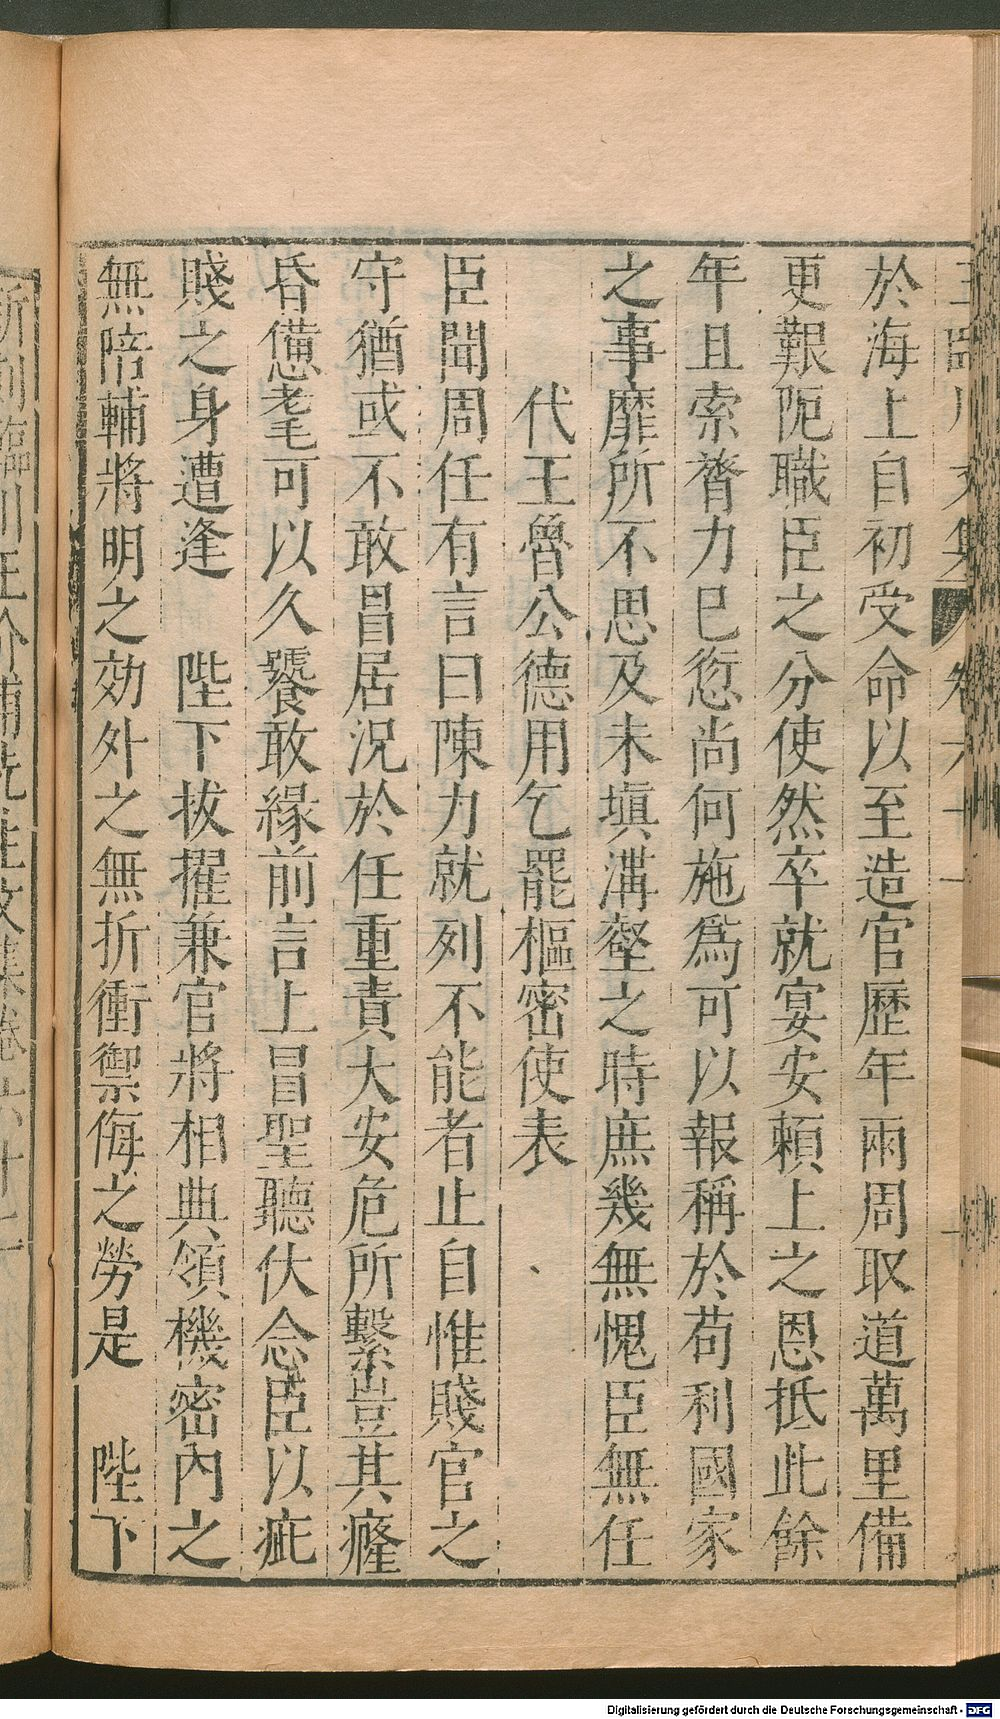 於海上自初受命以至造官歷年兩周取道萬里備
更艱阨職臣之分使然卒就宴安賴上之恩抵此餘
年且索膂力已愆尚何施爲可以報稱於苟利國家
之事靡所不思及未塡溝壑之時庶幾無愧臣無任
代王魯公德用乞罷樞密使表
臣聞周任有言曰陳力就列不能者止自惟賤官之
守猶或不敢冒居況於任重責大安危所繫豈其癃
昏憊耄可以久饕敢緣前言上冒聖聽伏念臣以疵
賤之身遭逢　陛下拔擢兼官將相典領機密內之
無陪輔將明之効外之無折衝禦侮之勞是　陛下
新刻臨川王介甫先生文集卷六十
Digitalisierung gefördert durch die Deutsche Forschungsgemeinschaft - DFG